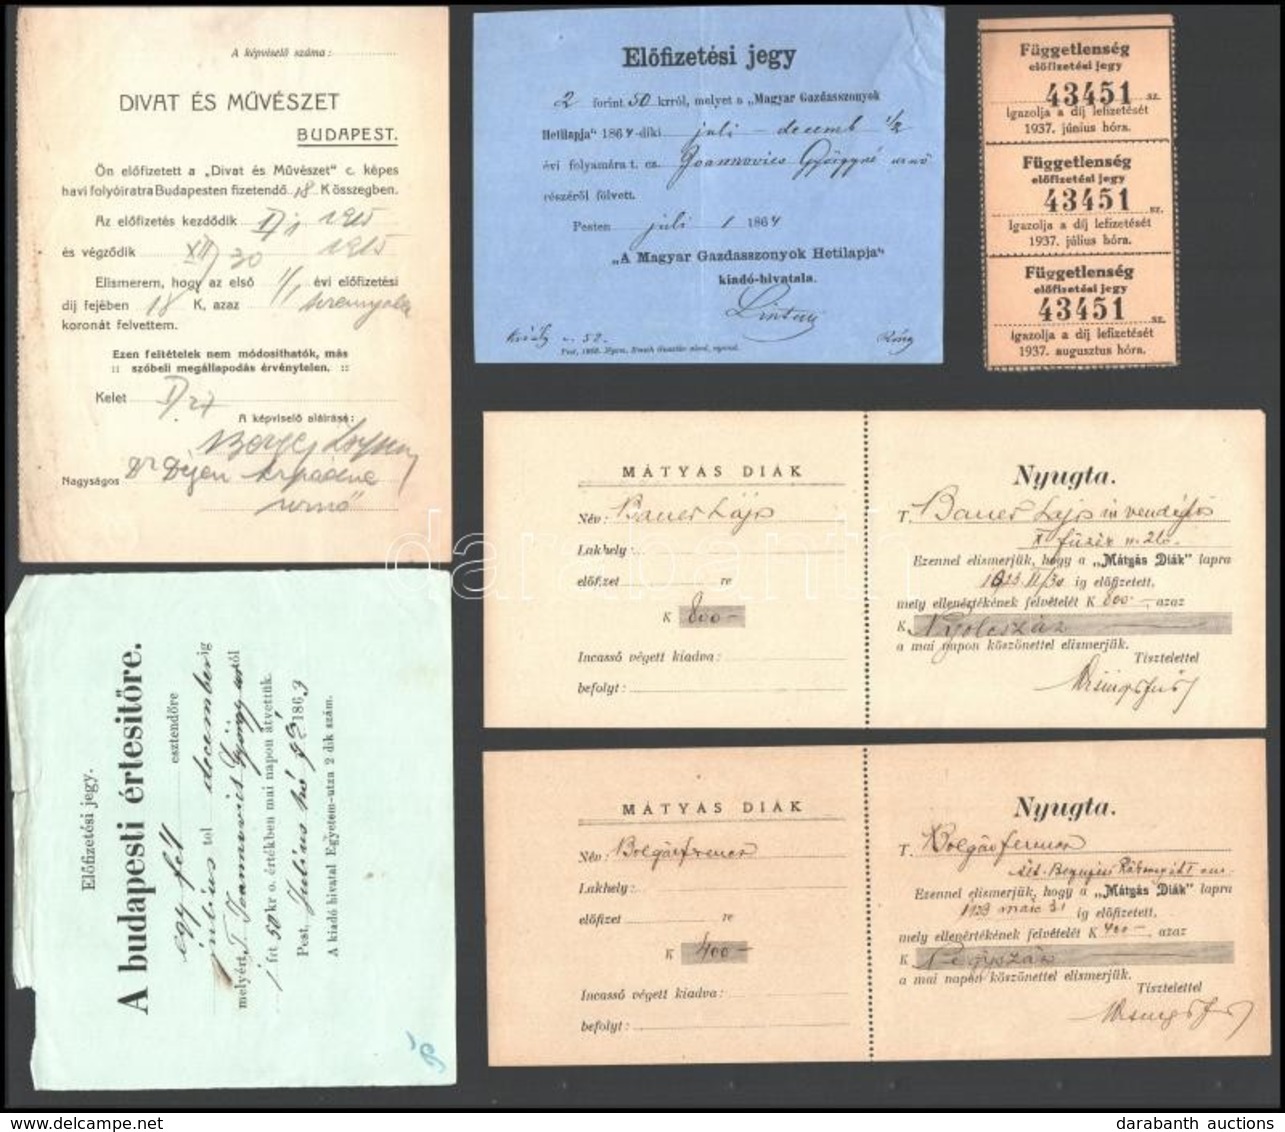 A képviselő száma:
DIVAT ÉS MŰVÉSZET
BUDAPEST.
Ön előfizetett a „Divat és Művészet" c. képes
havi folyóiratra Budapesten fizetendő 18 K összegben.
Az előfizetés kezdődik 1915
és végződik XII/30 1915
Elismerem, hogy az első 1/1 évi előfizetési
díj fejében 18 K, azaz
koronát felvettem.
Ezen feltételek nem módosíthatók, más
:: szóbeli megállapodás érvénytelen. ::
Kelet
A képviselő aláírása:
Nagyságos Dr
Előfizetési jegy
2 forint 50 krról, melyet a „Magyar Gazdasszonyok
Hetilapja" 1864-diki juli - decemb 1/2
évi folyamára t. cz. Joannovics Györgyné urnő
részéről fölvett.
Pesten juli 1 1864
„A Magyar Gazdasszonyok Hetilapja"
kiadó-hivatala.
Függetlenség
előfizetési jegy
43451 sz.
igazolja a díj lefizetését
1937. június hóra.
Függetlenség
előfizetési jegy
43451 sz.
Igazolja a díj lefizetését
1937. július hóra.
Függetlenség
előfizetési jegy
43451 sz.
igazolja a díj lefizetését
1937. augusztus hóra.
MÁTYÁS DIÁK
Név: Bauer Lajos
Lakhely:
előfizet re
K 800-
Incassó végett kiadva:
befolyt:
Nyugta.
T. Bauer Lajos vendéglős
Ezennel elismerjük, hogy a „Mátyás Diák" lapra
ig előfizetett,
mely ellenértékének felvételét K 800-, azaz
K Nyolcszáz
a mai napon köszönettel elismerjük.
Tisztelettel
Előfizetési jegy.
A budapesti értesitőre.
egy fél esztendőre
julius tol decemberig
melyért T. Joannovics György urtól
1 frt 50 kr o. értékben mai napon átvettük.
Pest, Julius hó 1863
A kiadó hivatal Egyetem-utza 2 dik szám.
MÁTYÁS DIÁK
Név: Bolgár Ferenc
Lakhely:
előfizet re
K 400-
Incassó végett kiadva:
befolyt:
Nyugta.
T. Bolgár Ferenc
Ezennel elismerjük, hogy a „Mátyás Diák" lapra
ig előfizetett,
mely ellenértékének felvételét K 400-, azaz
K Négyszáz
a mai napon köszönettel elismerjük.
Tisztelettel
darabanth
darabanth auctions